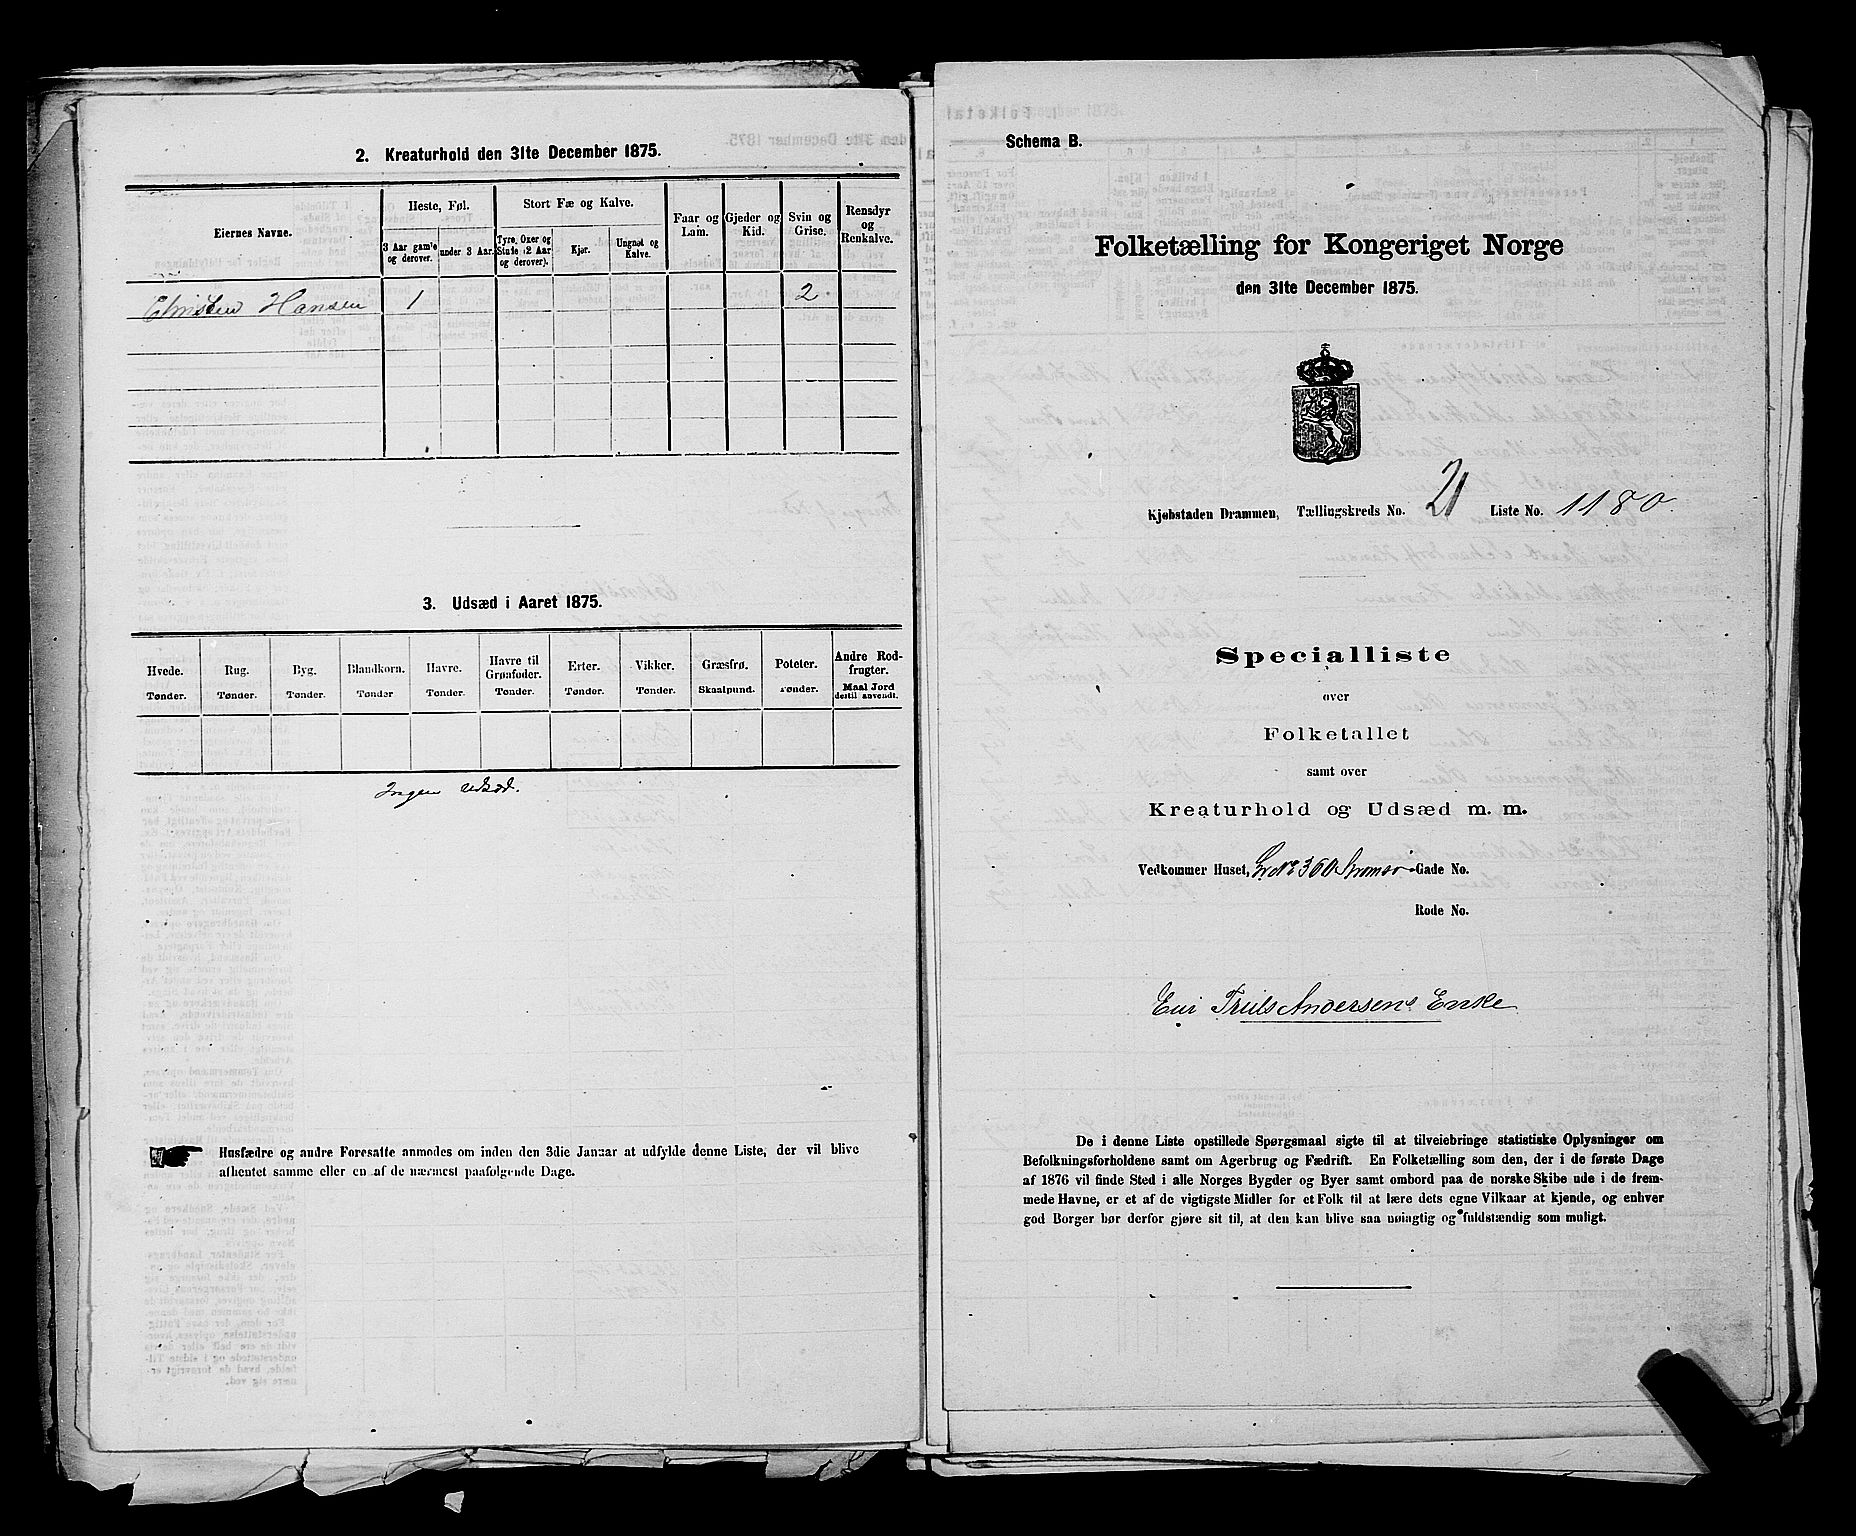 2. Kreaturhold den 31te December 1875.
Eiernes Navne.
Heste, Føl.
3 Aar gamle og derover.
under 3 Aar.
Stort Fæ og Kalve.
Tyre, Oxer og Stude (2 Aar og derover).
Kjør.
Ungnøt og Kalve.
Faar og Lam.
Gjeder og Kid.
Svin og Grise.
Rensdyr og Renkalve.
Christen Hansen 1 2
3. Udsæd i Aaret 1875.
Hvede. Tønder.
Rug. Tønder.
Byg. Tønder.
Blandkorn. Tønder
Havre. Tønder.
Havre til Grønfoder. Tønder.
Erter. Tønder.
Vikker. Tønder.
Græsfrø. Skaalpund.
Poteter. Tønder.
Andre Rodfrugter. Maal Jord dertil anvendt.
Ingen Udsæd.
Husfædre og andre Foresatte anmodes om inden den 3die Januar at udfylde denne Liste, der vil blive
afhentet samme eller en af de nærmest paafølgende Dage.
Schema B.
Folketælling for Kongeriget Norge
den 31te December 1875.
Kjøbstaden Drammen, Tællingskreds No. 21 Liste No. 1180.
Specialliste
over
Folketallet
samt over
Kreaturhold og Udsæd m. m.
Vedkommer Huset, Gr No 360 Strømsø Gade No.
Rode No.
Eier Truls Andersens Enke
De i denne Liste opstillede Spørgsmaal sigte til at tilveiebringe statistiske Oplysninger om
Befolkningsforholdene samt om Agerbrug og Fædrift. En Folketælling som den, der i de første Dage
af 1876 vil finde Sted i alle Norges Bygder og Byer samt ombord paa de norske Skibe ude i de frem-
mede Havne, er et af de vigtigste Midler for et Folk til at lære dets egne Vilkaar at kjende, og enhver
god Borger bør derfor gjøre sit til, at den kan blive saa nøiagtig og fuldstændig som muligt.